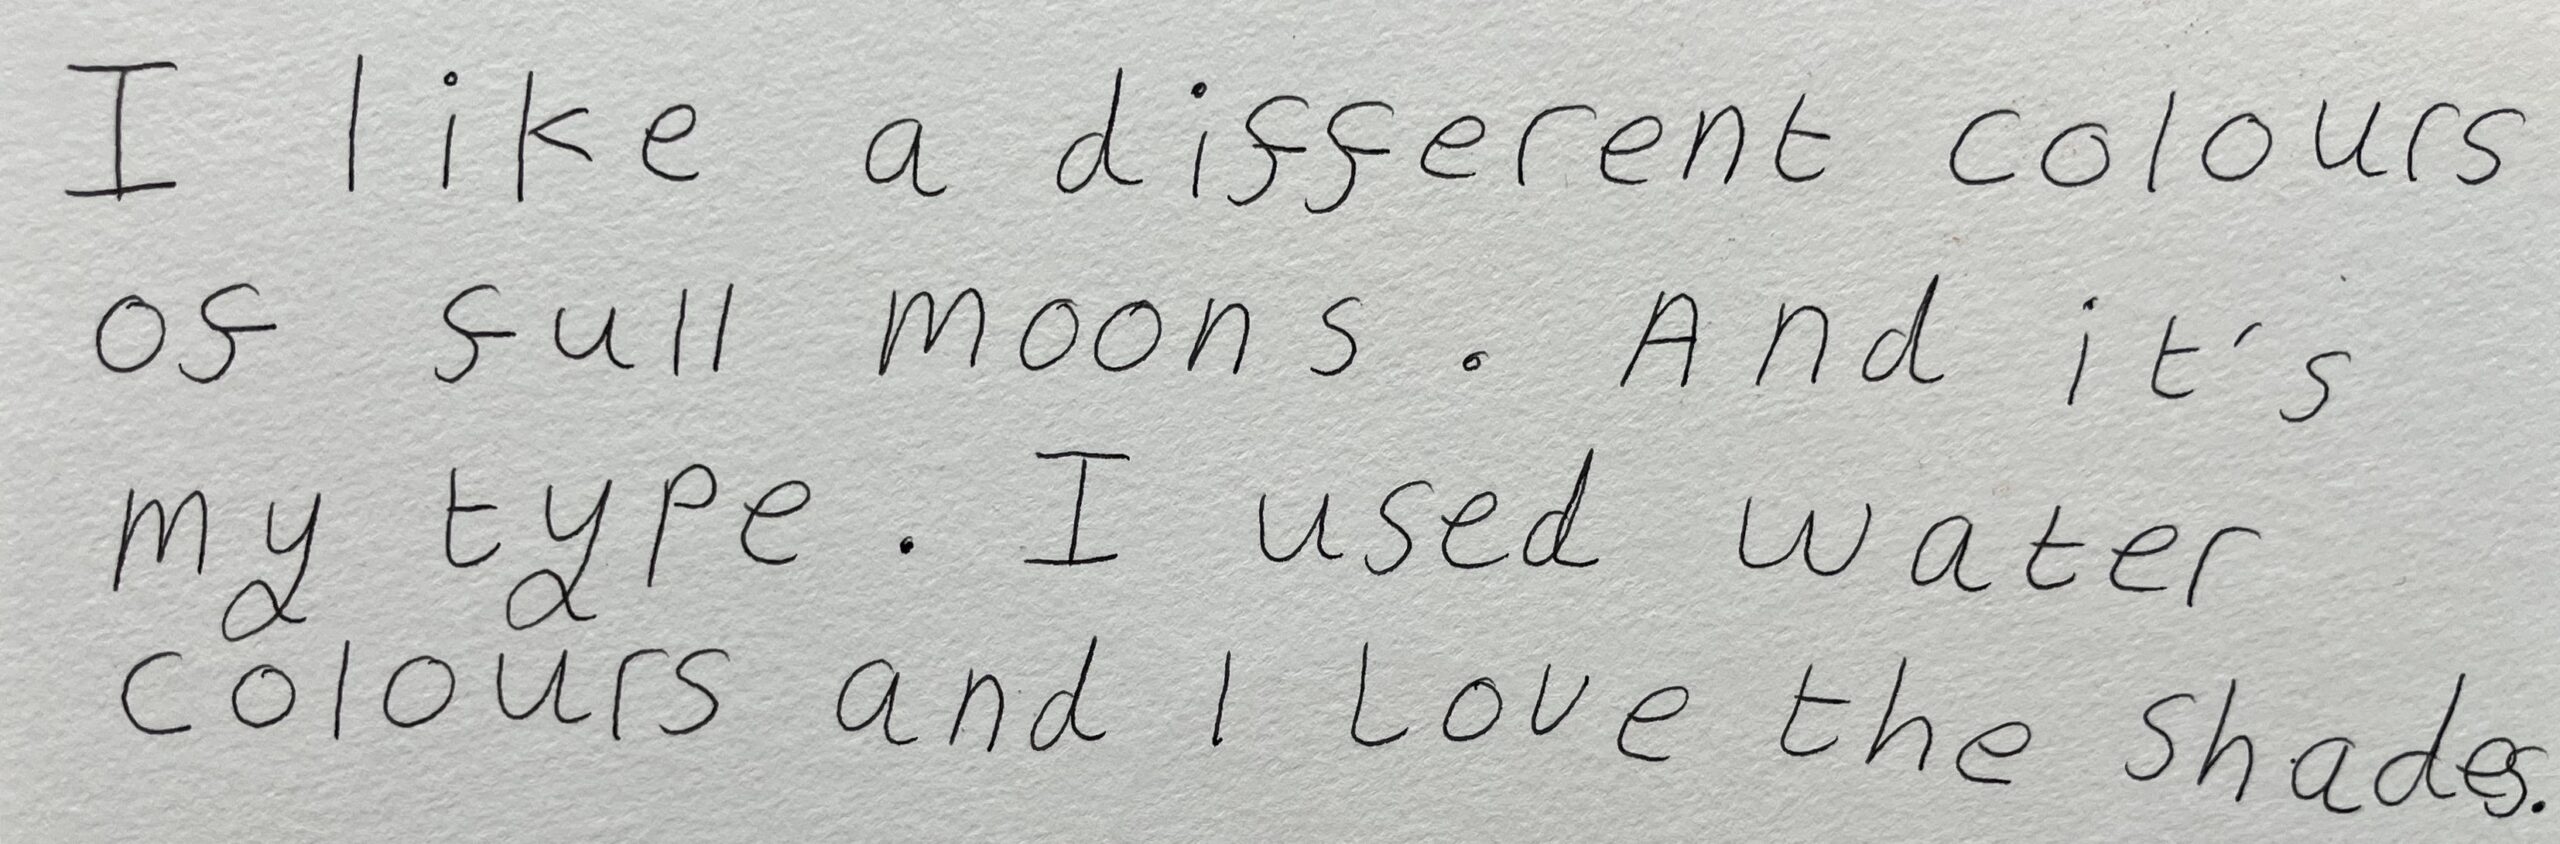 I like a different colours
of full moons. And it's
my type. I used water
colours and I Love the shades.